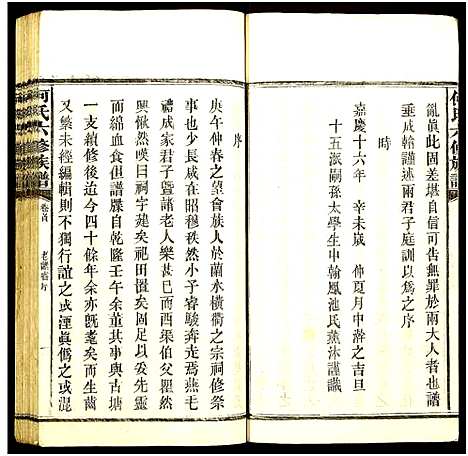 何氏六修族譜
亂眞此固差堪自信可告無罪於兩大人者也譜
垂成翰謹述兩君子庭訓以爲之序
時
嘉慶十六年 辛未歲 仲夏月中澣之吉旦
十五派嗣孫太學生中翰鳳池氏薰沐謹識
序
庚午仲春之望會族人於蒸水橫衢之宗祠修祭
事也少長咸在昭穆秩然小子睿駿奔走焉燕毛
禮成家君子暨諸老人樂甚已而酉渠伯父瞿然
興慨然嘆曰祠宇葺矣祀田增矣可以妥先靈
而綿血食但譜牒自乾隆壬午余董其事與古塘
一支續修後迨今四十餘年余亦旣耄矣而生齒
又繁未經編輯則不獨行誼之或湮眞僞之或混
何氏六修族譜
卷首
老譜序
一